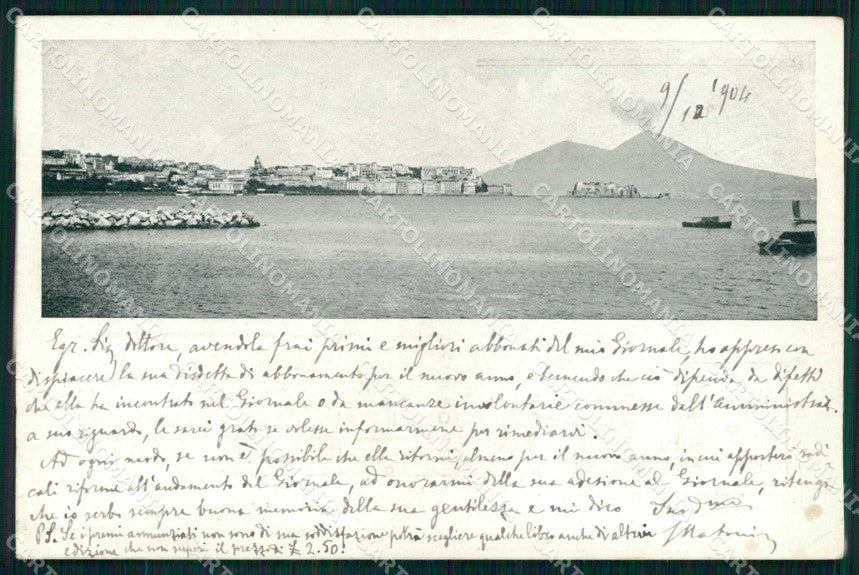 9/12 '904
Egr. Sig. Dottore, avendola fra i primi e migliori abbonati del mio Giornale, ho appreso con
dispiacere la sua disdetta di abbonamento per il nuovo anno, e temendo che ciò dipenda da difetti
che ella ha incontrato nel Giornale o da mancanze involontarie commesse dall'Amministraz.
a suo riguardo, le sarei grato se volesse informarmene per rimediarvi.
Ad ogni modo, se non è possibile che ella ritorni, almeno per il nuovo anno, in cui apporterò radi
cali riforme all'andamento del Giornale, ad onorarmi della sua adesione al Giornale, ritenga
che io serbo sempre buona memoria della sua gentilezza e mi dico Suo
PS. Se i premi annunziati non sono di sua soddisfazione potrà scegliere qualche libro anche di altra
edizione che non superi il prezzo di £ 2.50.
CARTOLINOMANIA.COM